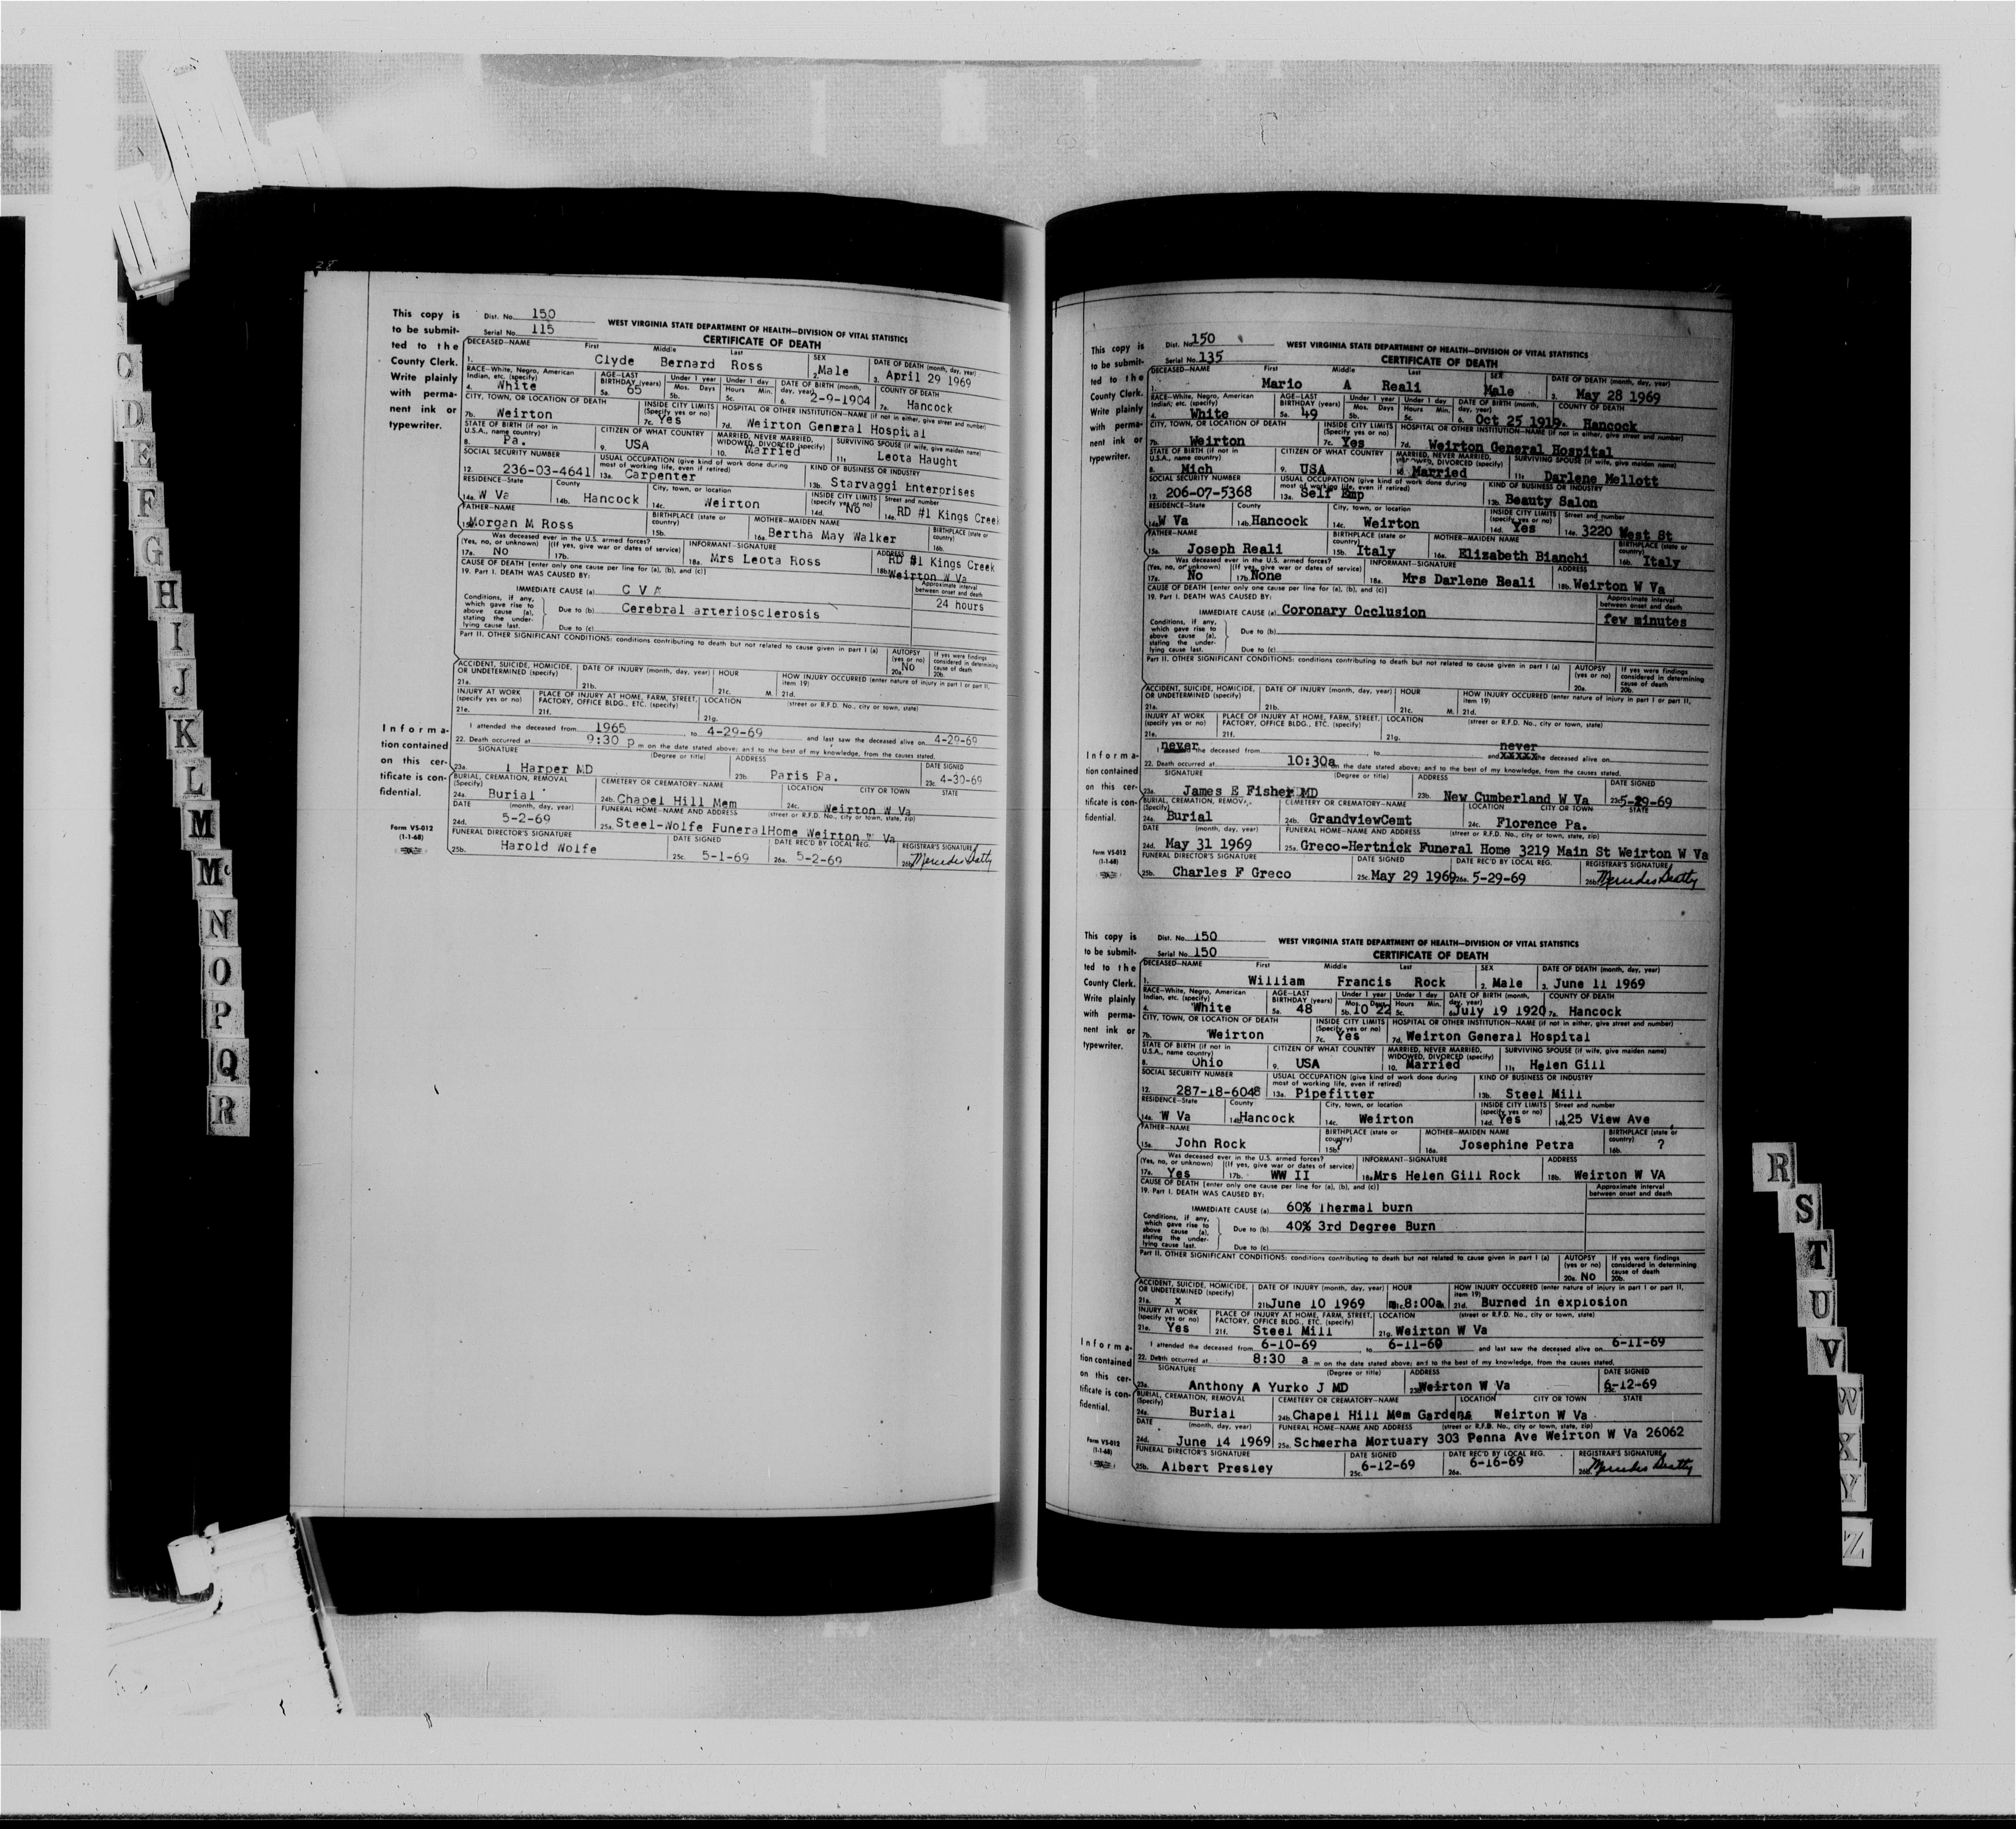 This copy is to be submitted to the County Clerk. Write plainly with permanent ink or typewriter.
Dist. No. 150
Serial No. 115
WEST VIRGINIA STATE DEPARTMENT OF HEALTH—DIVISION OF VITAL STATISTICS
CERTIFICATE OF DEATH
DECEASED—NAME First Middle Last SEX DATE OF DEATH (month, day, year)
1. Clyde Bernard Ross 2. Male 3. April 29 1969
RACE—White, Negro, American Indian, etc. (specify) AGE—LAST BIRTHDAY (years) Under 1 year Mos. Days Under 1 day Hours Min. DATE OF BIRTH (month, day, year) COUNTY OF DEATH
4. White 5a. 65 5b. 5c. 6. 2-9-1904 7a. Hancock
CITY, TOWN, OR LOCATION OF DEATH INSIDE CITY LIMITS (Specify yes or no) HOSPITAL OR OTHER INSTITUTION—NAME (if not in either, give street and number)
7b. Weirton 7c. Yes 7d. Weirton General Hospital
STATE OF BIRTH (if not in U.S.A., name country) CITIZEN OF WHAT COUNTRY MARRIED, NEVER MARRIED, WIDOWED, DIVORCED (specify) SURVIVING SPOUSE (if wife, give maiden name)
8. Pa. 9. USA 10. Married 11. Leota Haught
SOCIAL SECURITY NUMBER USUAL OCCUPATION (give kind of work done during most of working life, even if retired) KIND OF BUSINESS OR INDUSTRY
12. 236-03-4641 13a. Carpenter 13b. Starvaggi Enterprises
RESIDENCE—State County City, town, or location INSIDE CITY LIMITS (specify yes or no) Street and number
14a. W Va 14b. Hancock 14c. Weirton 14d. No 14e. RD #1 Kings Creek
FATHER—NAME BIRTHPLACE (state or country) MOTHER—MAIDEN NAME BIRTHPLACE (state or country)
15a. Morgan M Ross 15b. 16a. Bertha May Walker 16b.
Was deceased ever in the U.S. armed forces? (Yes, no, or unknown) (If yes, give war or dates of service) INFORMANT—SIGNATURE ADDRESS
17a. No 17b. 18a. Mrs Leota Ross 18b. RD #1 Kings Creek Weirton W Va
CAUSE OF DEATH [enter only one cause per line for (a), (b), and (c)]
19. Part I. DEATH WAS CAUSED BY: Approximate interval between onset and death
IMMEDIATE CAUSE (a) C V A 24 hours
Conditions, if any, which gave rise to above cause (a), stating the underlying cause last. Due to (b) Cerebral arteriosclerosis
Due to (c)
Part II. OTHER SIGNIFICANT CONDITIONS: conditions contributing to death but not related to cause given in part I (a) AUTOPSY (yes or no) If yes were findings considered in determining cause of death
20a. No 20b.
ACCIDENT, SUICIDE, HOMICIDE, OR UNDETERMINED (specify) DATE OF INJURY (month, day, year) HOUR HOW INJURY OCCURRED (enter nature of injury in part I or part II, item 19)
21a. 21b. 21c. M. 21d.
INJURY AT WORK (specify yes or no) PLACE OF INJURY AT HOME, FARM, STREET, FACTORY, OFFICE BLDG., ETC. (specify) LOCATION (street or R.F.D. No., city or town, state)
21e. 21f. 21g.
Information contained on this certificate is confidential.
I attended the deceased from 1965 to 4-29-69 and last saw the deceased alive on 4-29-69
22. Death occurred at 9:30 p m on the date stated above; and to the best of my knowledge, from the causes stated.
SIGNATURE (Degree or title) ADDRESS DATE SIGNED
23a. I Harper MD 23b. Paris Pa. 23c. 4-30-69
BURIAL, CREMATION, REMOVAL (Specify) CEMETERY OR CREMATORY—NAME LOCATION CITY OR TOWN STATE
24a. Burial 24b. Chapel Hill Mem 24c. Weirton W Va
DATE (month, day, year) FUNERAL HOME—NAME AND ADDRESS (street or R.F.D. No., city or town, state, zip)
24d. 5-2-69 25a. Steel-Wolfe Funeral Home Weirton W Va
FUNERAL DIRECTOR'S SIGNATURE DATE SIGNED DATE REC'D BY LOCAL REG. REGISTRAR'S SIGNATURE
25b. Harold Wolfe 25c. 5-1-69 26a. 5-2-69 26b. Mercedes Beatty
Form VS-012
(1-1-68)
This copy is to be submitted to the County Clerk. Write plainly with permanent ink or typewriter.
Dist. No. 150
Serial No. 135
WEST VIRGINIA STATE DEPARTMENT OF HEALTH—DIVISION OF VITAL STATISTICS
CERTIFICATE OF DEATH
DECEASED—NAME First Middle Last SEX DATE OF DEATH (month, day, year)
1. Mario A Reali Male 3. May 28 1969
RACE—White, Negro, American Indian, etc. (specify) AGE—LAST BIRTHDAY (years) Under 1 year Mos. Days Under 1 day Hours Min. DATE OF BIRTH (month, day, year) COUNTY OF DEATH
4. White 5a. 49 5b. 5c. 6. Oct 25 1919 Hancock
CITY, TOWN, OR LOCATION OF DEATH INSIDE CITY LIMITS (Specify yes or no) HOSPITAL OR OTHER INSTITUTION—NAME (if not in either, give street and number)
7b. Weirton 7c. Yes 7d. Weirton General Hospital
STATE OF BIRTH (if not in U.S.A., name country) CITIZEN OF WHAT COUNTRY MARRIED, NEVER MARRIED, WIDOWED, DIVORCED (specify) SURVIVING SPOUSE (if wife, give maiden name)
8. Mich 9. USA 10. Married 11. Darlene Mellott
SOCIAL SECURITY NUMBER USUAL OCCUPATION (give kind of work done during most of working life, even if retired) KIND OF BUSINESS OR INDUSTRY
12. 206-07-5368 13a. Self Emp 13b. Beauty Salon
RESIDENCE—State County City, town, or location INSIDE CITY LIMITS (specify yes or no) Street and number
14a. W Va 14b. Hancock 14c. Weirton 14d. Yes 14e. 3220 West St
FATHER—NAME BIRTHPLACE (state or country) MOTHER—MAIDEN NAME BIRTHPLACE (state or country)
15a. Joseph Reali 15b. Italy 16a. Elizabeth Bianchi 16b. Italy
Was deceased ever in the U.S. armed forces? (Yes, no, or unknown) (If yes, give war or dates of service) INFORMANT—SIGNATURE ADDRESS
17a. No 17b. None 18a. Mrs Darlene Beali 18b. Weirton W Va
CAUSE OF DEATH [enter only one cause per line for (a), (b), and (c)]
19. Part I. DEATH WAS CAUSED BY: Approximate interval between onset and death
IMMEDIATE CAUSE (a) Coronary Occlusion few minutes
Conditions, if any, which gave rise to above cause (a), stating the underlying cause last. Due to (b)
Due to (c)
Part II. OTHER SIGNIFICANT CONDITIONS: conditions contributing to death but not related to cause given in part I (a) AUTOPSY (yes or no) If yes were findings considered in determining cause of death
20a. 20b.
ACCIDENT, SUICIDE, HOMICIDE, OR UNDETERMINED (specify) DATE OF INJURY (month, day, year) HOUR HOW INJURY OCCURRED (enter nature of injury in part I or part II, item 19)
21a. 21b. 21c. M. 21d.
INJURY AT WORK (specify yes or no) PLACE OF INJURY AT HOME, FARM, STREET, FACTORY, OFFICE BLDG., ETC. (specify) LOCATION (street or R.F.D. No., city or town, state)
21e. 21f. 21g.
Information contained on this certificate is confidential.
I never the deceased from to and never XXXXX the deceased alive on
22. Death occurred at 10:30a m on the date stated above; and to the best of my knowledge, from the causes stated.
SIGNATURE (Degree or title) ADDRESS DATE SIGNED
23a. James E Fisher MD 23b. New Cumberland W Va 23c. 5-29-69
BURIAL, CREMATION, REMOVAL (Specify) CEMETERY OR CREMATORY—NAME LOCATION CITY OR TOWN STATE
24a. Burial 24b. GrandviewCemt 24c. Florence Pa.
DATE (month, day, year) FUNERAL HOME—NAME AND ADDRESS (street or R.F.D. No., city or town, state, zip)
24d. May 31 1969 25a. Greco-Hertnick Funeral Home 3219 Main St Weirton W Va
FUNERAL DIRECTOR'S SIGNATURE DATE SIGNED DATE REC'D BY LOCAL REG. REGISTRAR'S SIGNATURE
25b. Charles F Greco 25c. May 29 1969 26a. 5-29-69 26b. Mercedes Beatty
Form VS-012
(1-1-68)
This copy is to be submitted to the County Clerk. Write plainly with permanent ink or typewriter.
Dist. No. 150
Serial No. 150
WEST VIRGINIA STATE DEPARTMENT OF HEALTH—DIVISION OF VITAL STATISTICS
CERTIFICATE OF DEATH
DECEASED—NAME First Middle Last SEX DATE OF DEATH (month, day, year)
1. William Francis Rock 2. Male 3. June 11 1969
RACE—White, Negro, American Indian, etc. (specify) AGE—LAST BIRTHDAY (years) Under 1 year Mos. Days Under 1 day Hours Min. DATE OF BIRTH (month, day, year) COUNTY OF DEATH
4. White 5a. 48 5b. 10 22 5c. 6. July 19 1920 7a. Hancock
CITY, TOWN, OR LOCATION OF DEATH INSIDE CITY LIMITS (Specify yes or no) HOSPITAL OR OTHER INSTITUTION—NAME (if not in either, give street and number)
7b. Weirton 7c. Yes 7d. Weirton General Hospital
STATE OF BIRTH (if not in U.S.A., name country) CITIZEN OF WHAT COUNTRY MARRIED, NEVER MARRIED, WIDOWED, DIVORCED (specify) SURVIVING SPOUSE (if wife, give maiden name)
8. Ohio 9. USA 10. Married 11. Helen Gill
SOCIAL SECURITY NUMBER USUAL OCCUPATION (give kind of work done during most of working life, even if retired) KIND OF BUSINESS OR INDUSTRY
12. 287-18-6048 13a. Pipefitter 13b. Steel Mill
RESIDENCE—State County City, town, or location INSIDE CITY LIMITS (specify yes or no) Street and number
14a. W Va 14b. Hancock 14c. Weirton 14d. Yes 14e. 125 View Ave
FATHER—NAME BIRTHPLACE (state or country) MOTHER—MAIDEN NAME BIRTHPLACE (state or country)
15a. John Rock 15b. ? 16a. Josephine Petra 16b. ?
Was deceased ever in the U.S. armed forces? (Yes, no, or unknown) (If yes, give war or dates of service) INFORMANT—SIGNATURE ADDRESS
17a. Yes 17b. WW II 18a. Mrs Helen Gill Rock 18b. Weirton W VA
CAUSE OF DEATH [enter only one cause per line for (a), (b), and (c)]
19. Part I. DEATH WAS CAUSED BY: Approximate interval between onset and death
IMMEDIATE CAUSE (a) 60% Thermal burn
Conditions, if any, which gave rise to above cause (a), stating the underlying cause last. Due to (b) 40% 3rd Degree Burn
Due to (c)
Part II. OTHER SIGNIFICANT CONDITIONS: conditions contributing to death but not related to cause given in part I (a) AUTOPSY (yes or no) If yes were findings considered in determining cause of death
20a. No 20b.
ACCIDENT, SUICIDE, HOMICIDE, OR UNDETERMINED (specify) DATE OF INJURY (month, day, year) HOUR HOW INJURY OCCURRED (enter nature of injury in part I or part II, item 19)
21a. X 21b. June 10 1969 21c. 8:00a 21d. Burned in explosion
INJURY AT WORK (specify yes or no) PLACE OF INJURY AT HOME, FARM, STREET, FACTORY, OFFICE BLDG., ETC. (specify) LOCATION (street or R.F.D. No., city or town, state)
21e. Yes 21f. Steel Mill 21g. Weirton W Va
Information contained on this certificate is confidential.
I attended the deceased from 6-10-69 to 6-11-69 and last saw the deceased alive on 6-11-69
22. Death occurred at 8:30 a m on the date stated above; and to the best of my knowledge, from the causes stated.
SIGNATURE (Degree or title) ADDRESS DATE SIGNED
23a. Anthony A Yurko J MD 23b. Weirton W Va 6-12-69
BURIAL, CREMATION, REMOVAL (Specify) CEMETERY OR CREMATORY—NAME LOCATION CITY OR TOWN STATE
24a. Burial 24b. Chapel Hill Mem Gardens Weirton W Va
DATE (month, day, year) FUNERAL HOME—NAME AND ADDRESS (street or R.F.D. No., city or town, state, zip)
24d. June 14 1969 25a. Schwerha Mortuary 303 Penna Ave Weirton W Va 26062
FUNERAL DIRECTOR'S SIGNATURE DATE SIGNED DATE REC'D BY LOCAL REG. REGISTRAR'S SIGNATURE
25b. Albert Presley 25c. 6-12-69 26a. 6-16-69 26b. Mercedes Beatty
Form VS-012
(1-1-68)
C
D
E
F
G
H
I
J
K
L
M
Mc
N
O
P
Q
R
R
S
T
U
V
W
X
Y
Z